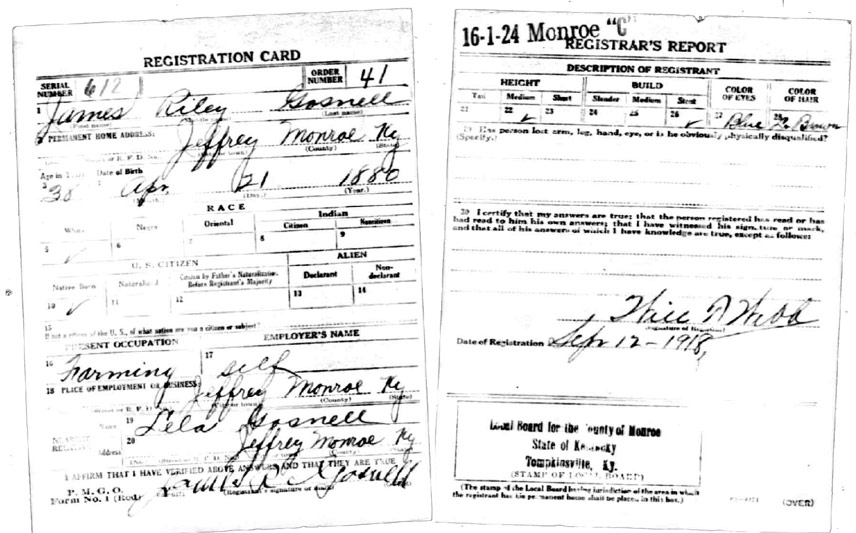 REGISTRATION CARD
SERIAL NUMBER 612
ORDER NUMBER 41
1 James Riley Gosnell
(Last name)
2 PERMANENT HOME ADDRESS:
Jeffrey Monroe Ky
(County) (State)
Age in Years Date of Birth
3 38 4 Apr. 21 1880
(Year.)
RACE
White Negro Oriental Indian
Citizen Noncitizen
5 ✓ 6 7 8 9
U. S. CITIZEN ALIEN
Native Born Naturalized Citizen by Father's Naturalization Before Registrant's Majority Declarant Non-declarant
10 ✓ 11 12 13 14
15
If not a citizen of the U. S., of what nation are you a citizen or subject?
PRESENT OCCUPATION EMPLOYER'S NAME
16 Farming 17 self
18 PLACE OF EMPLOYMENT OR BUSINESS:
Jeffrey Monroe Ky
(County) (State)
NEAREST RELATIVE
Name 19 Lela Gosnell
Address 20 Jeffrey Monroe Ky
I AFFIRM THAT I HAVE VERIFIED ABOVE ANSWERS AND THAT THEY ARE TRUE
P. M. G. O.
Form No. 1 (Red)
James R Gosnell
(Registrant's signature or mark)
16-1-24 Monroe "C"
REGISTRAR'S REPORT
DESCRIPTION OF REGISTRANT
HEIGHT BUILD COLOR OF EYES COLOR OF HAIR
Tall Medium Short Slender Medium Stout
21 22 ✓ 23 24 25 26 ✓ 27 Blue 28 Brown
29 Has person lost arm, leg, hand, eye, or is he obviously physically disqualified?
(Specify.)
30 I certify that my answers are true; that the person registered has read or has
had read to him his own answers; that I have witnessed his signature or mark,
and that all of his answers of which I have knowledge are true, except as follows:
Webb
(Signature of Registrar)
Date of Registration Sep 12-1918,
Local Board for the County of Monroe
State of Kentucky
Tompkinsville, Ky.
(STAMP OF LOCAL BOARD)
(The stamp of the Local Board having jurisdiction of the area in which
the registrant has his permanent home shall be placed in this box.)
(OVER)